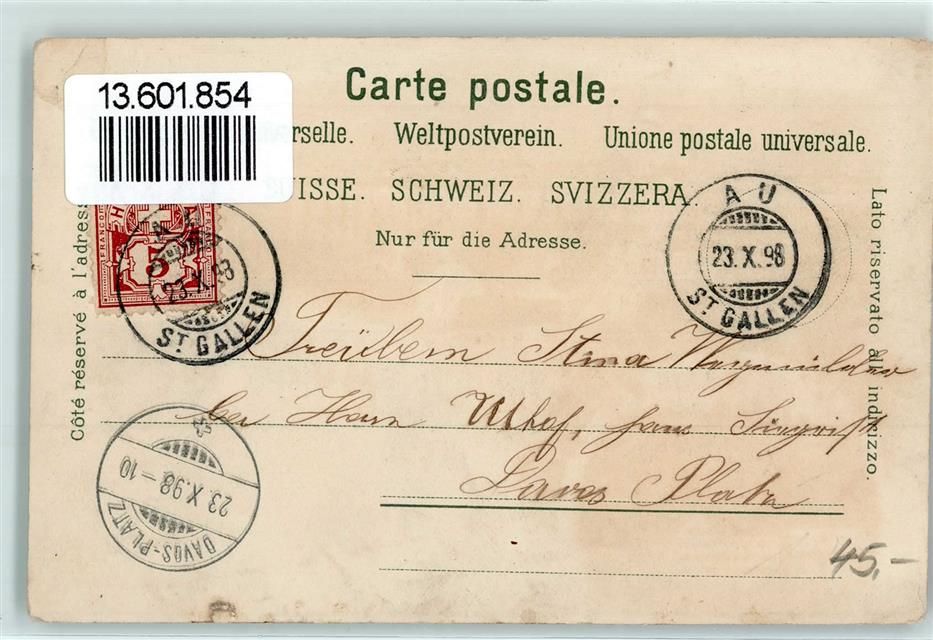 13.601.854
Carte postale.
rselle. Weltpostverein. Unione postale universale.
UISSE. SCHWEIZ. SVIZZERA.
Nur für die Adresse.
Côté réservé à l'adress
Lato riservato all indirizzo.
AU
23.X.98
ST GALLEN
5
FRANCO
23.X.98
ST GALLEN
Stina
bei Herrn
Davos Platz
23.X.98-10
DAVOS-PLATZ
45.-